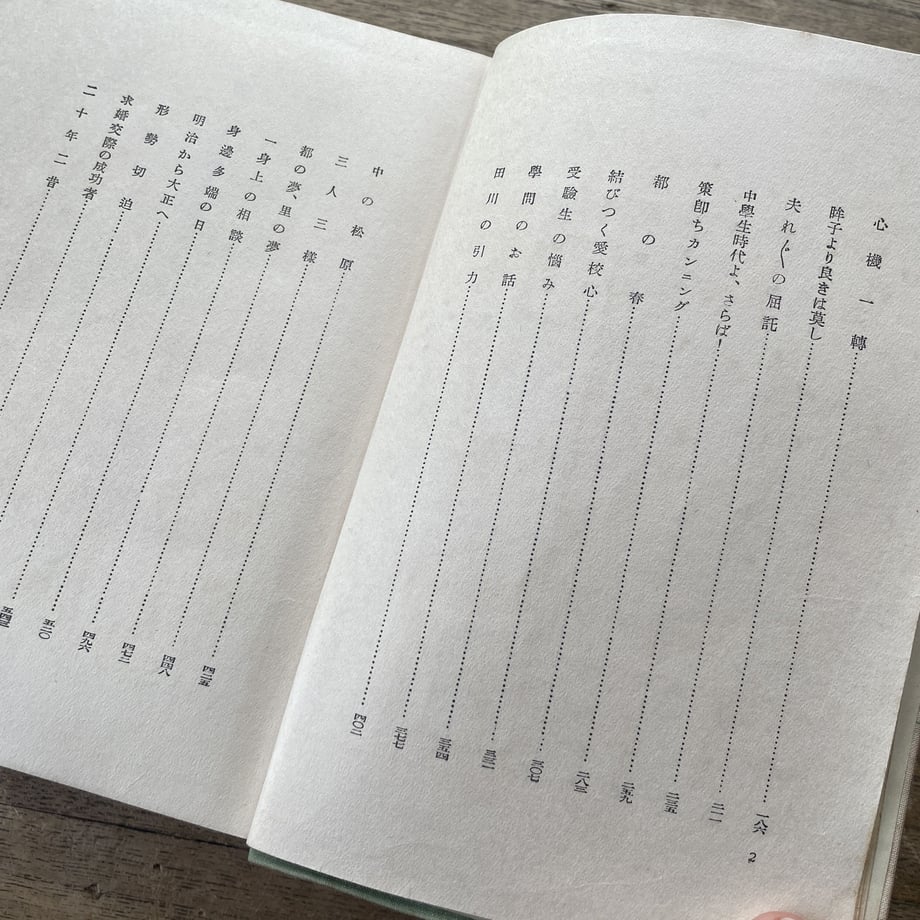 心機一轉……一八六
眸子より良きは莫し……二一一
夫れ〴〵の屈託……二三五
中學生時代よ、さらば!……二五九
策卽ちカンニング……二八三
都の春……三〇七
結びつく愛校心……三三一
受驗生の惱み……三五四
學問のお話……三七七
田川の引力……四〇二
2
中の松原……四二五
三人三樣……四四八
都の夢、里の夢……四七二
一身上の相談……四九六
身邊多端の日……五二〇
明治から大正へ……五四三
形勢切迫……
求婚交際の成功者……
二十年二昔……